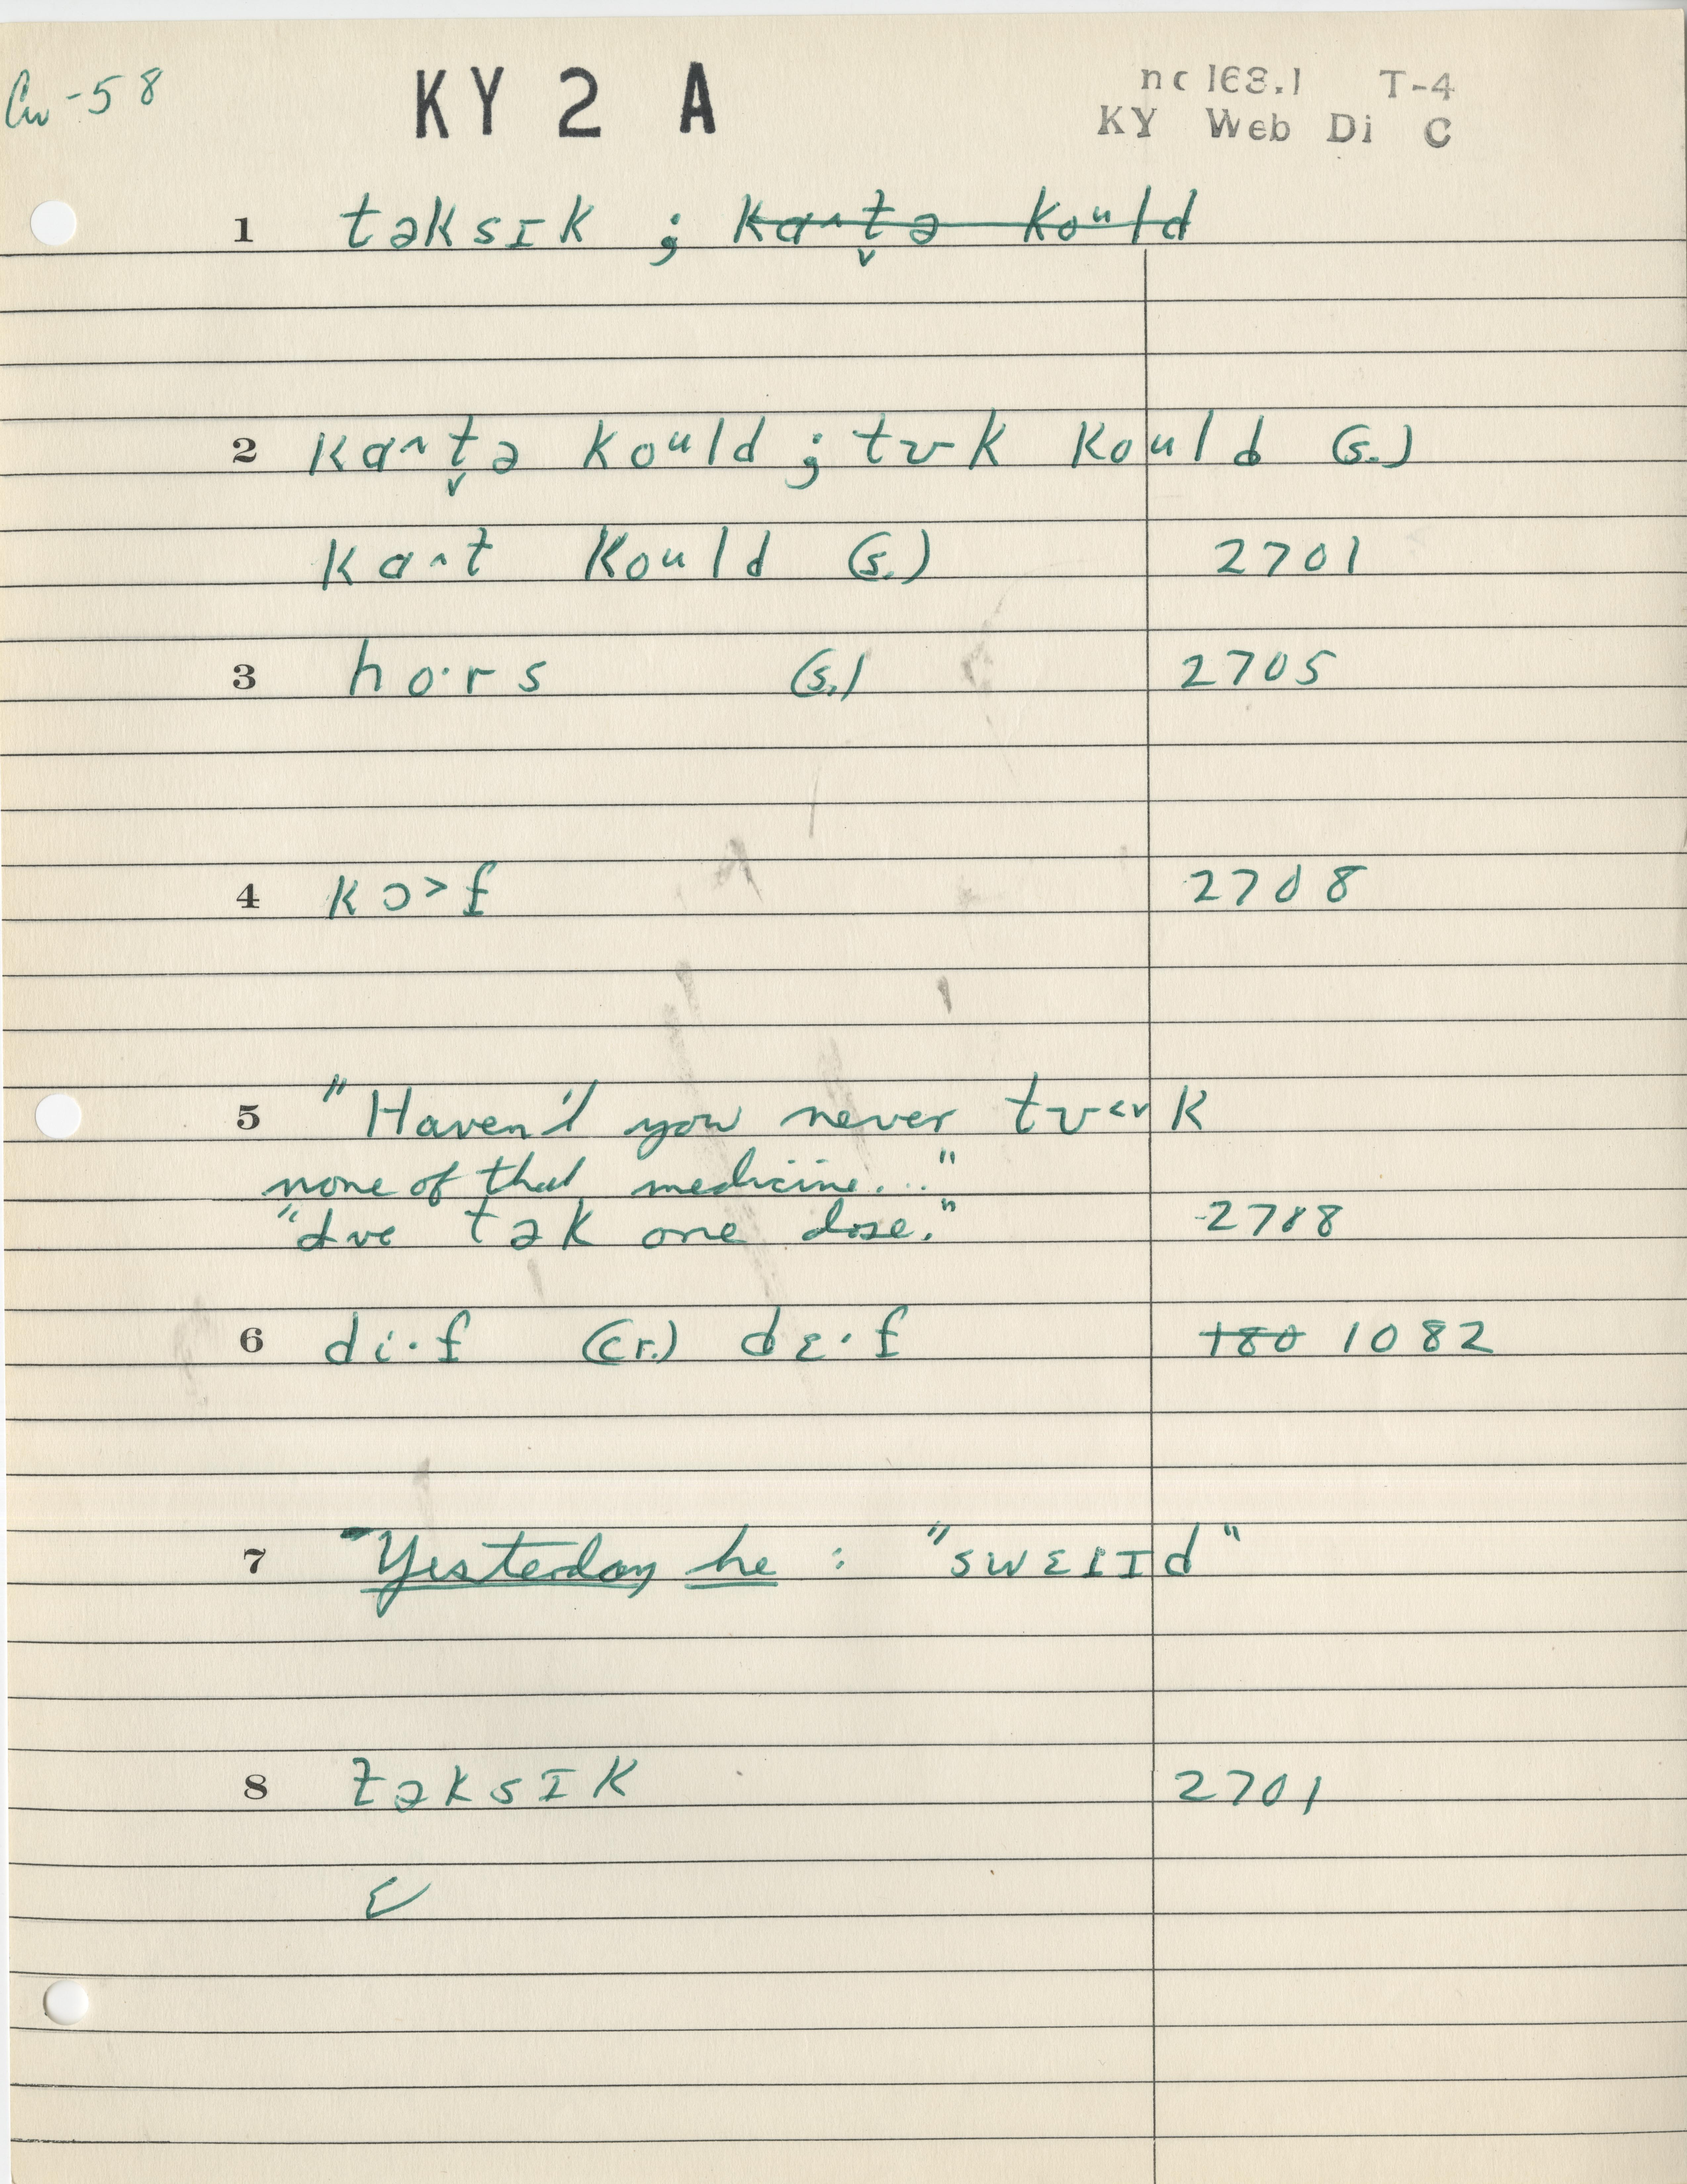 Cw-58
KY 2 A
nc 163.1 T-4
KY Web Di C
1 təksɪk ; ka^t̬ə koᵘld
2 ka^t̬ə koᵘld ; tʊk koᵘld (s.)
ka^t koᵘld (s.) 2701
3 ho·rs (s.) 2705
4 kɔ>f 2708
5 "Haven't you never tʊ<ʊk
none of that medicine..."
"I've tək one dose." 2788
6 di·f (cr.) dɛ·f 180 1082
7 "Yesterday he : "swɛlɪd"
8 təksɪk 2701